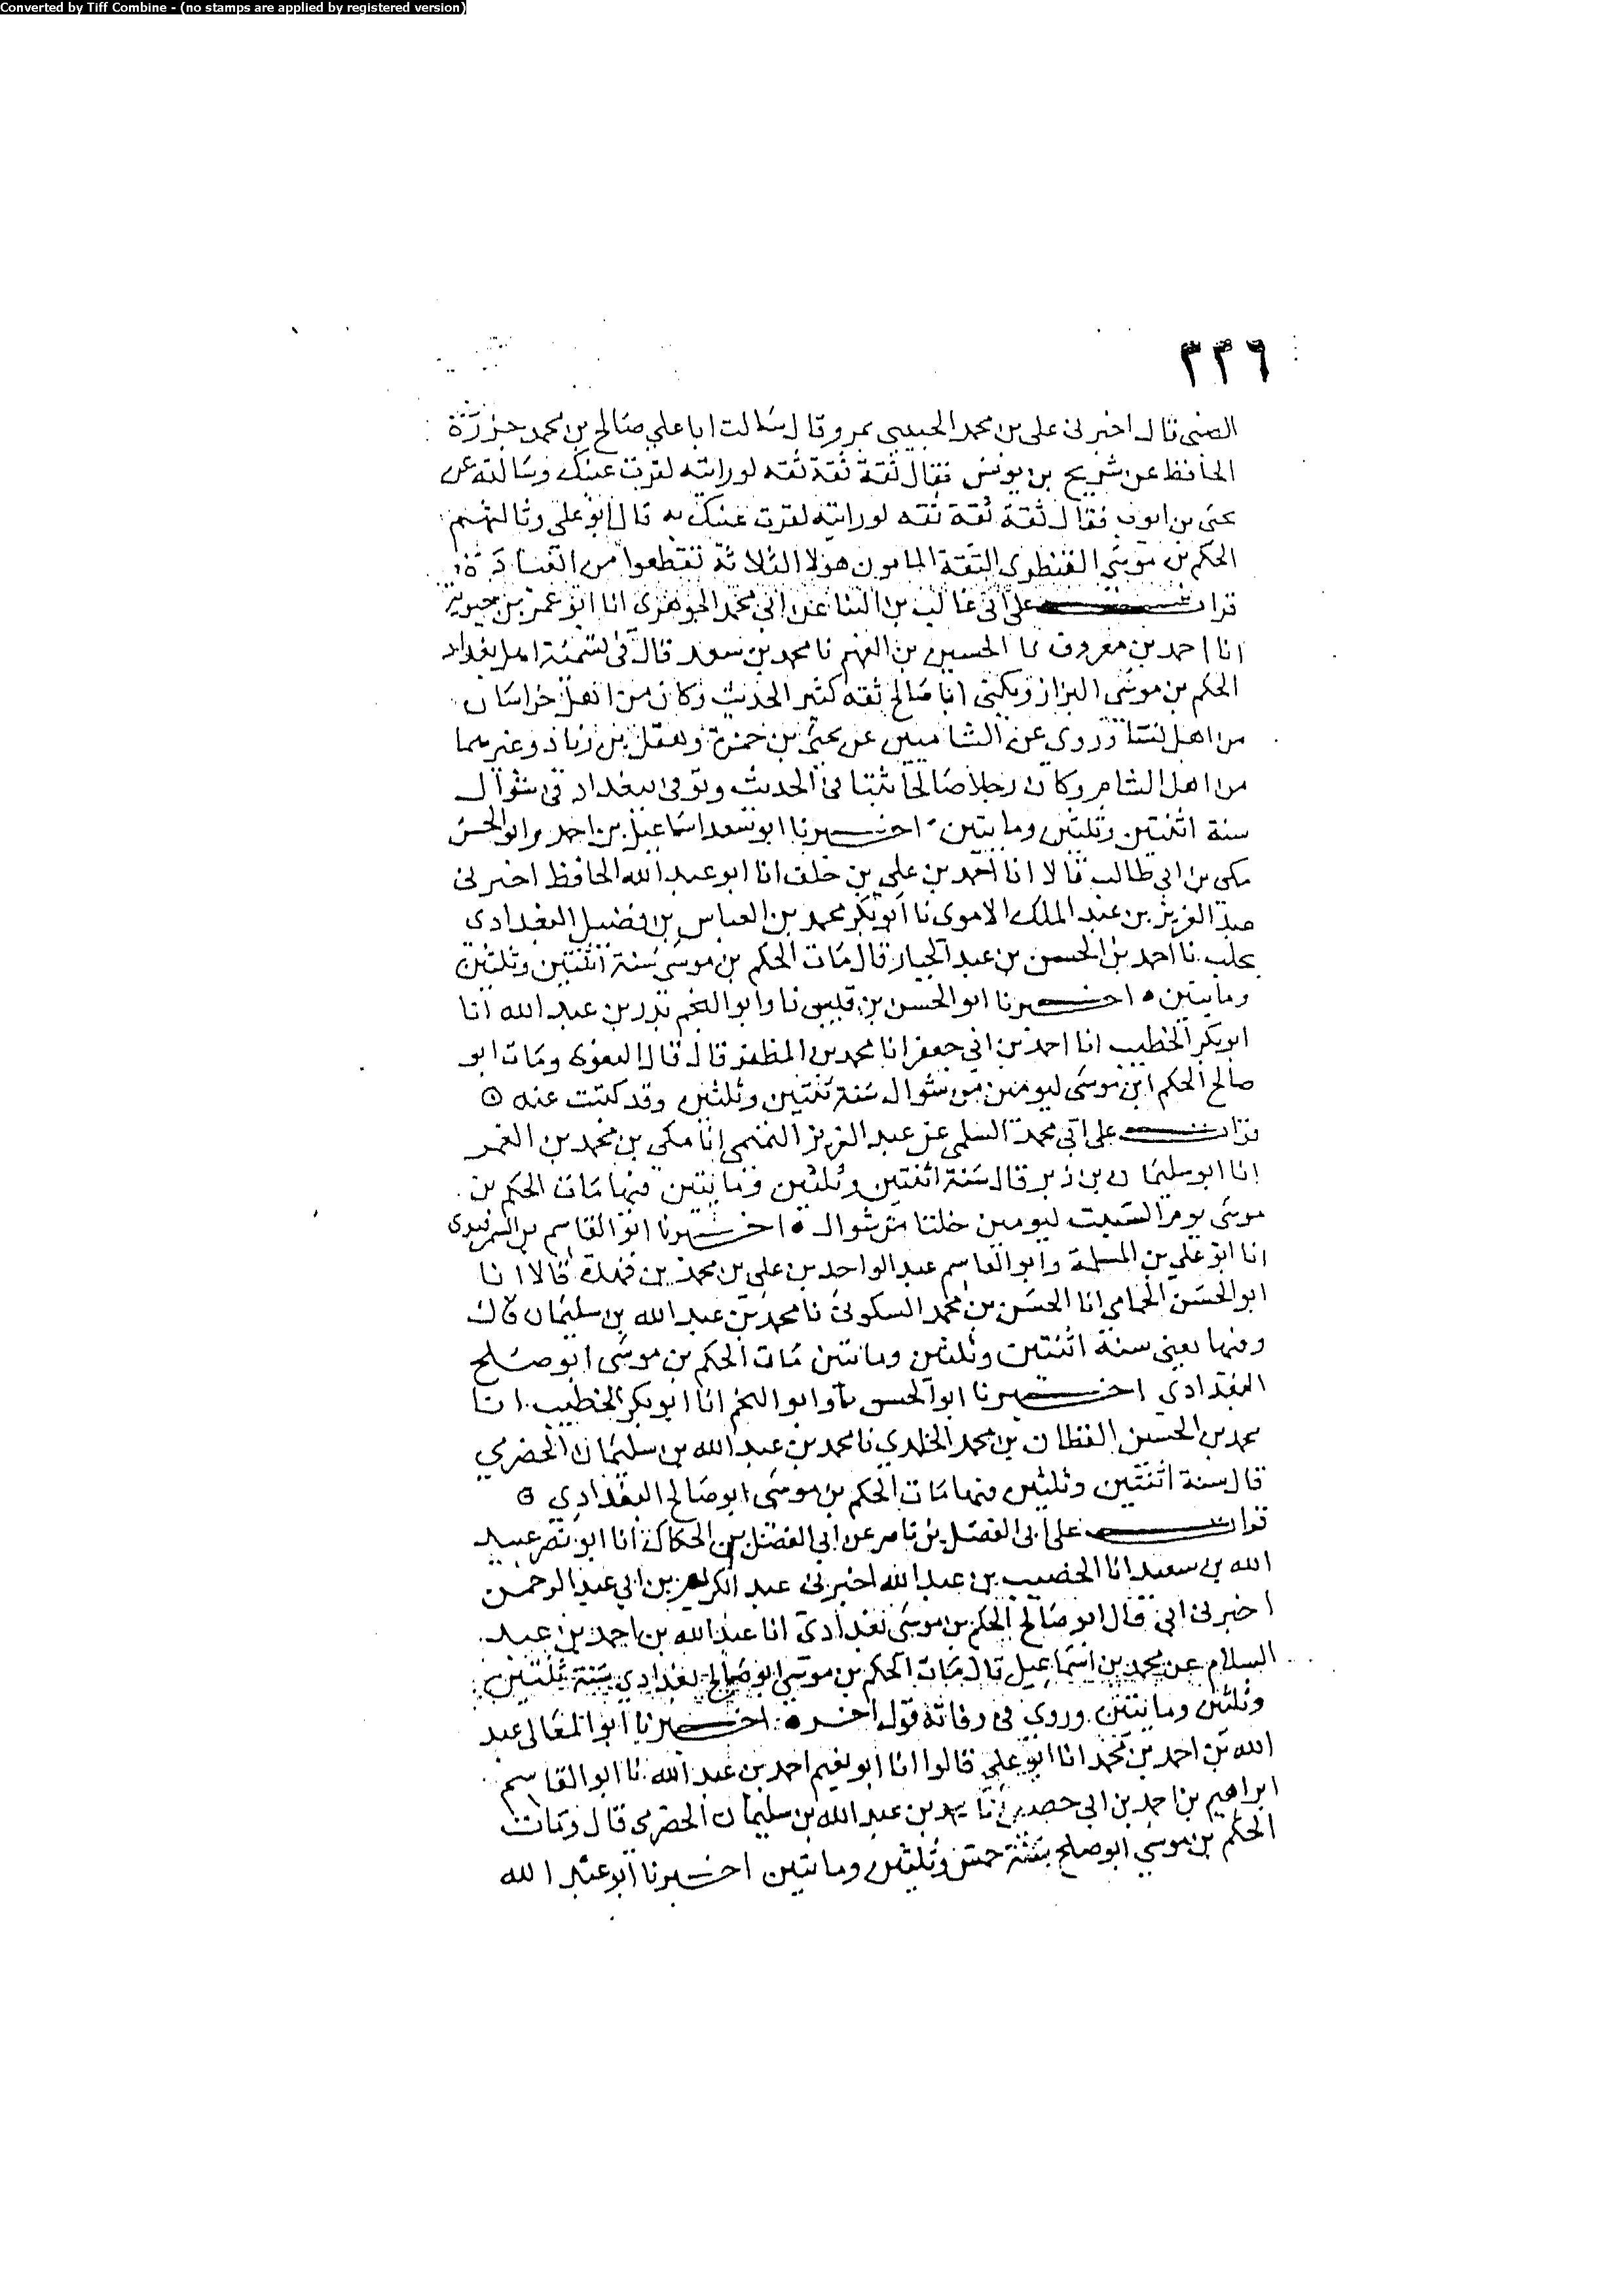 Converted by Tiff Combine - (no stamps are applied by registered version)
٣٣٦
الضبى قال اخبرنى على بن محمد الحبيبى بمرو قال سالت ابا على صالح بن محمد جزرة
الحافظ عن شريح بن يونس فقال ثقة ثقة ثقه لو رايته لقرت عينك وسالته عن
يحيى بن ايوب فقال ثقة ثقة ثقه لو رايته لقرت عينك به قال ابو على وثالثهم
الحكم بن موسى القنطرى الثقة المامون هولا الثلاثة تقطعوا من العبادة
قرات على ابى غالب بن البنا عن ابى محمد الجوهرى انا ابو عمر بن حيويه
انا احمد بن معروف نا الحسين بن الفهم نا محمد بن سعد قال فى تسمية اهل بغداد
الحكم بن موسى البزاز ويكنى ابا صالح ثقه كثير الحديث وكان من اهل خراسان
من اهل نسا وروى عن الشاميين عن يحيى بن حمزة وهقل بن زياد وغيرهما
من اهل الشام وكان رجلا صالحا ثبتا فى الحديث وتوفى ببغداد فى شوال
سنة اثنتين وثلثين ومايتين اخبرنا ابو سعد اسماعيل بن احمد وابو الحسن
مكى بن ابى طالب قالا انا احمد بن على بن خلف انا ابو عبد الله الحافظ اخبرنى
عبد العزيز بن عبد الملك الاموى نا ابو بكر محمد بن العباس بن فضيل البغدادى
بحلب نا احمد بن الحسن بن عبد الجبار قال مات الحكم بن موسى سنة اثنتين وثلثين
ومايتين اخبرنا ابو الحسن بن قبيس نا وابو النجم بدر بن عبد الله انا
ابو بكر الخطيب انا احمد بن ابى جعفر انا محمد بن المظفر قال قال البغوى ومات ابو
صالح الحكم ابن موسى ليومين من شوال سنة ثنتين وثلثين وقد كتبت عنه
قرات على ابى محمد السلمى عن عبد العزيز التميمى انا مكى بن محمد بن الغمر
انا ابو سليمان بن زبر قال سنة اثنتين وثلثين ومايتين فيها مات الحكم بن
موسى يوم السبت ليومين خلتا من شوال اخبرنا ابو القاسم بن السمرقندى
انا ابو على بن المسلمة وابو القاسم عبد الواحد بن على بن محمد بن فهد قالا انا
ابو الحسن الحمامى انا الحسن بن محمد السكونى نا محمد بن عبد الله بن سليمان قال
وفيها يعنى سنة اثنتين وثلثين ومايتين مات الحكم بن موسى ابو صلح
البغدادى اخبرنا ابو الحسن نا وابو النجم انا ابو بكر الخطيب انا
محمد بن الحسين القطان بن محمد الخلدى نا محمد بن عبد الله بن سليمان الحضرمى
قال سنة اثنتين وثلثين فيها مات الحكم بن موسى ابو صالح البغدادى
قرات على ابى الفضل بن ناصر عن ابى الفضل بن الحكاك انا ابو نصر عبيد
الله بن سعيد انا الخصيب بن عبد الله اخبرنى عبد الكريم بن ابى عبد الرحمن
اخبرنى ابى قال ابو صالح الحكم بن موسى بغدادى انا عبد الله بن احمد بن عبد
السلام عن محمد بن اسماعيل قال مات الحكم بن موسى ابو صالح بغدادى سنة ثنتين
وثلثين ومايتين وروى فى وفاته قول اخر اخبرنا ابو المعالى عبد
الله بن احمد بن محمد انا ابو على قالوا انا ابو نعيم احمد بن عبد الله نا ابو القاسم
ابراهيم بن احمد بن ابى حصين نا محمد بن عبد الله بن سليمان الحضرمى قال ومات
الحكم بن موسى ابو صلح سنة خمس وثلثين ومايتين اخبرنا ابو عبد الله